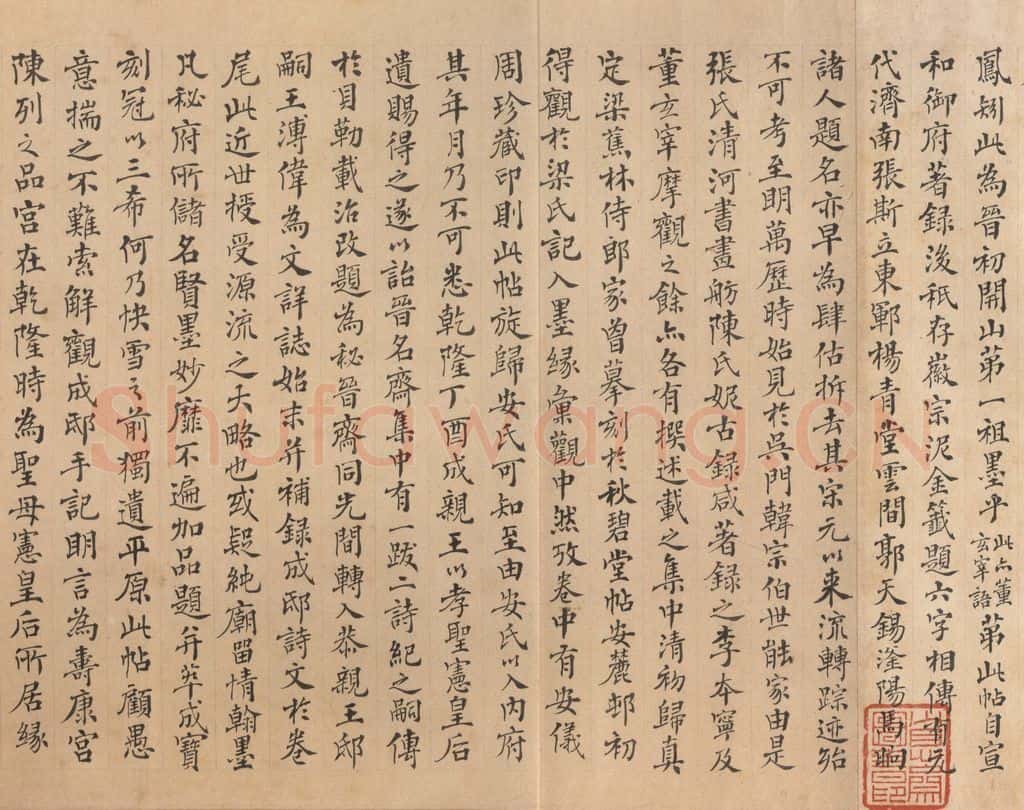 鳳矧此為晉初開山第一祖墨乎此亦董玄宰語第此帖自宣
和御府著錄後秖存徽宗泥金籤題六字相傳有元
代濟南張斯立東鄆楊青堂雲間郭天錫滏陽馬晌
諸人題名亦早為肆估拆去其宋元以来流轉踪迹殆
不可考至明萬歷時始見於吳門韓宗伯世能家由是
張氏清河書畫舫陳氏妮古録咸著録之李本寧及
董玄宰摩觀之餘亦各有撰述載之集中清初歸真
定梁蕉林侍郎家曾摹刻於秋碧堂帖安麓邨初
得觀於梁氏記入墨緣彙觀中然攷卷中有安儀
周珍藏印則此帖旋歸安氏可知至由安氏以入內府
其年月乃不可悉乾隆丁酉成親王以孝聖憲皇后
遺賜得之遂以詒晉名齋集中有一跋二詩紀之嗣傳
於貝勒載治改題為秘晉齋同光間轉入恭親王邸
嗣王溥偉為文詳誌始末并補録成邸詩文於卷
尾此近世授受源流之大略也或疑純廟留情翰墨
凡秘府所儲名賢墨妙靡不遍加品題并萃成寶
刻冠以三希何乃快雪之前獨遺平原此帖顧愚
意揣之不難索解觀成邸手記明言為壽康宮
陳列之品宮在乾隆時為聖母憲皇后所居緣
Shufawang.CN